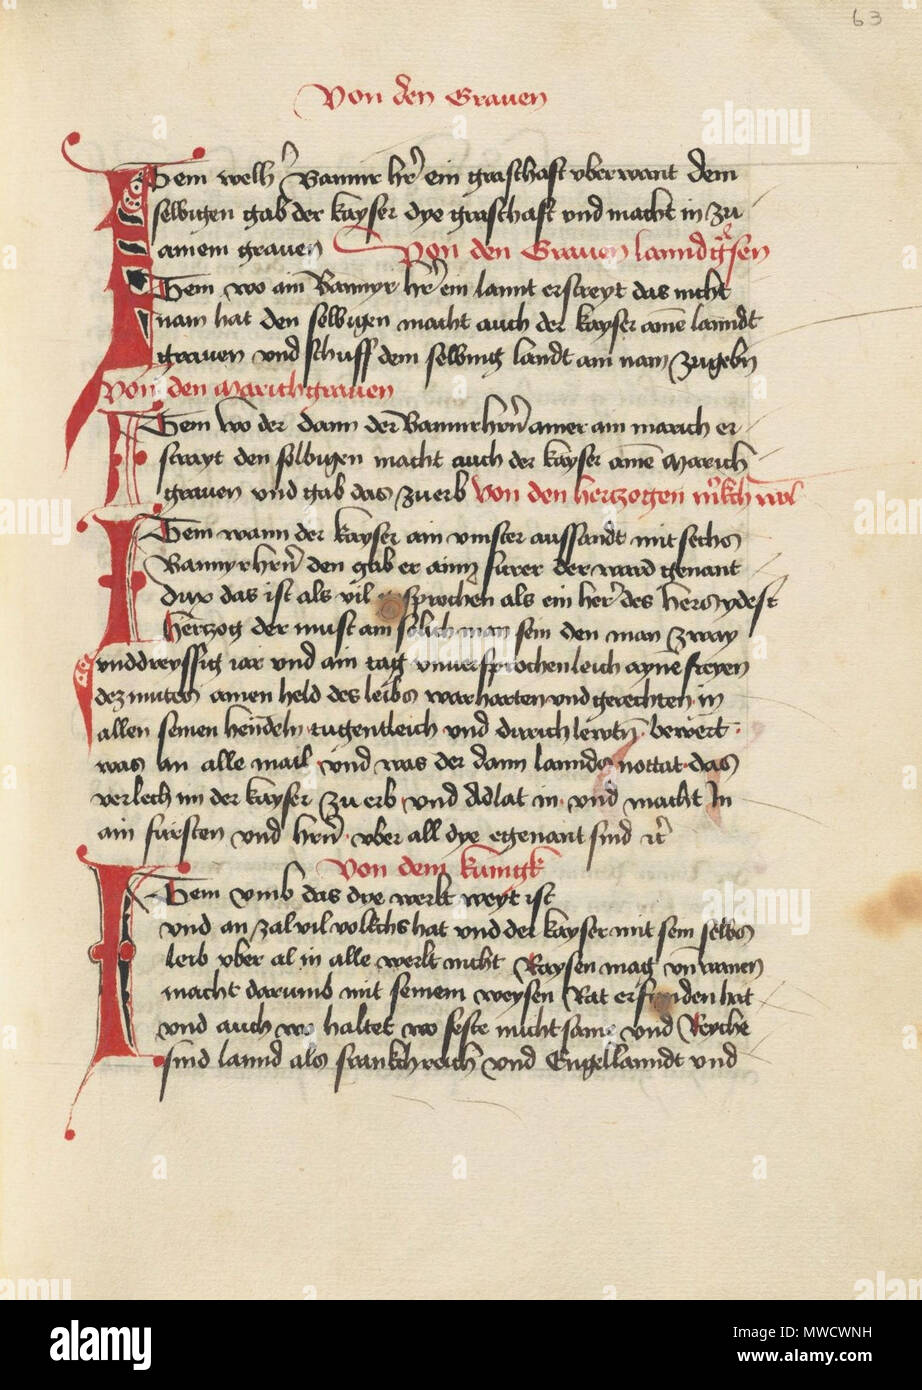 63
Von den Grauen
Item welh Banner hr ein graschaft vberwant dem
selbigen gab der kayser dye graschaft vnd macht in zu
ainem grauen Von den Grauen lanndgrsen
Item wo ain Banyr hr ein lannt erstreyt das nicht
nam hat den selbigen macht auch der kayser aine lanndt
grauen vnd schuff dem selbing landt ain nam zugebn
Von den Marichgrauen
Item wo der dann der Banirhrn ainer ain marich er
strayt den selbigen macht auch der kayser aine Marich
grauen vnd gab das zuerb Von den hertzogen
Item wann der kayser ain vinster aussandt mit sechs
Banyrhrn den gab er ainn furer der ward genant
dux das ist als vil gesprochen als ein her des hers ydest
Hertzog der must ain solich man sein den man zway
vnddreyssig iar vnd ain tag vnuersprochenleich ayne freyen
dez muters ainen held des leibs warharten vnd gerechten in
allen seinen hendeln tugentleich vnd durich lewtn bewert
was an alle mail vnd was der dann lannds nottat das
verlech im der kayser zu erb vnd Adlat in vnd macht In
ain fursten vnd hrn vber all dye egenant sind rc
Von dem kunigk
Item vmb das dye werlt weyt ist
vnd an zal vil volkchs hat vnd der kayser mit sein selbs
leib vber al in alle werlt nicht Raysen mag vnd ainen
macht darumb mit seinem weysen Rat erfunden hat
vnd auch wo haltet wo feste nicht same vnd Reyche
sind lannd als frankchreich vnd Engellanndt vnd
alamy
Image ID: MWCWNH
www.alamy.com